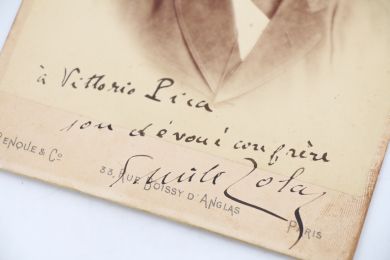 à Vittorio Pica
son dévoué confrère
Emile Zola
PENQUE & Co.
33, RUE BOISSY D'ANGLAS
PARIS